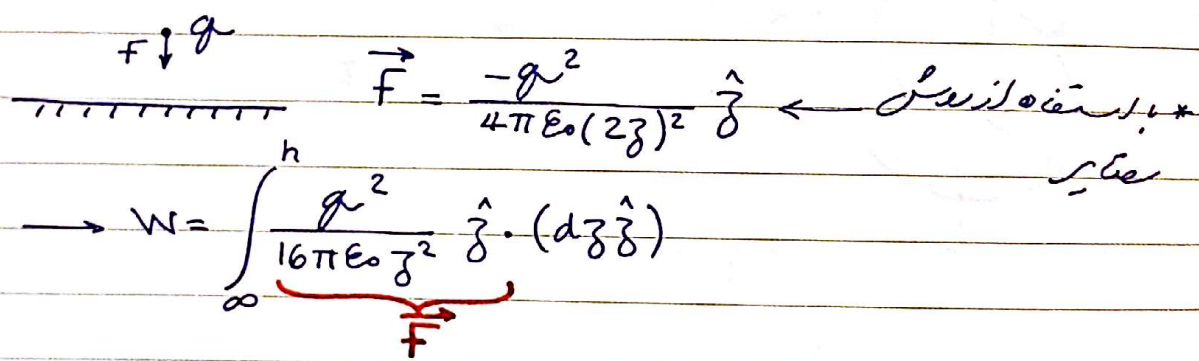 F q
F = -q² / 4πε₀(2z)² ẑ ← * با استفاده از روش
تصاویر
→ W = ∫∞^h q² / 16πε₀z² ẑ · (dz ẑ)
F